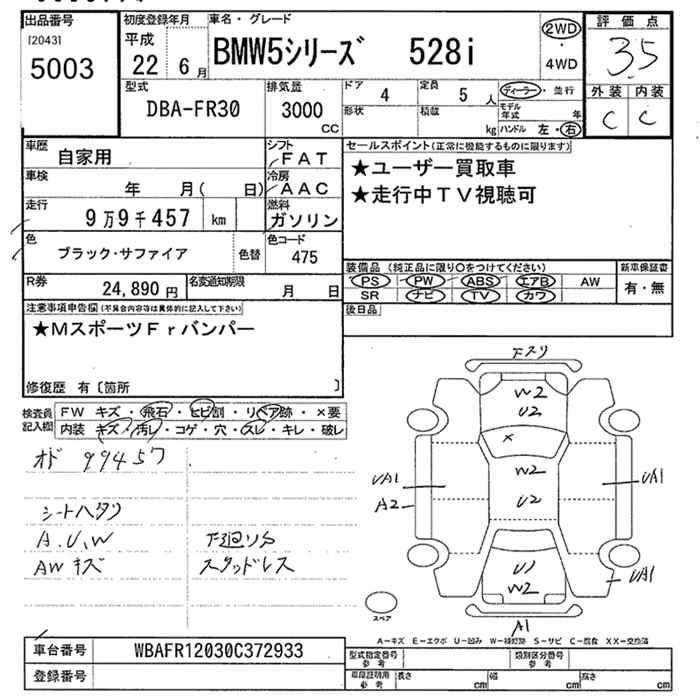 出品番号
[2043]
5003
初度登録年月
平成
22 6月
車名・グレード
BMW5シリーズ 528i
2WD
・
4WD
評価点
3.5
外装 内装
C C
型式
DBA-FR30
排気量
3000
CC
ドア
4
定員
5 人
ディーラー・並行
形状
積載
kg
モデル年式 年
ハンドル 左・右
車歴
自家用
シフト
FAT
車検
年 月( 日)
冷房
AAC
走行
9万9千457 km
燃料
ガソリン
色
ブラック・サファイア
色替
色コード
475
R券
24,890 円
名変通知期限
月 日
セールスポイント(正常に機能するものに限ります)
★ユーザー買取車
★走行中TV視聴可
装備品(純正品に限り○をつけてください)
PS PW ABS エアB AW
SR ナビ TV カワ
新車保証書
有・無
後日品
注意事項申告欄(不具合内容等は具体的に記入して下さい)
★MスポーツFrバンパー
修復歴 有〔箇所 〕
検査員記入欄
FW キズ・飛石・ヒビ割・リペア跡・×要
内装 キズ・汚レ・コゲ・穴・スレ・キレ・破レ
オド 99457
シートヘタリ
A.U.W
AWキズ
下廻りサ
スタッドレス
Fスリ
W2
U2
×
W2
U2
UA1
A2
UA1
U1
W2
UA1
A1
スペア
A-キズ E-エクボ U-凹み W-補修跡 S-サビ C-腐食 XX-交換済
車台番号
WBAFR12030C372933
登録番号
型式指定番号
参考
類別区分番号
参考
車庫証明用
参考
長さ cm
幅 cm
高さ cm